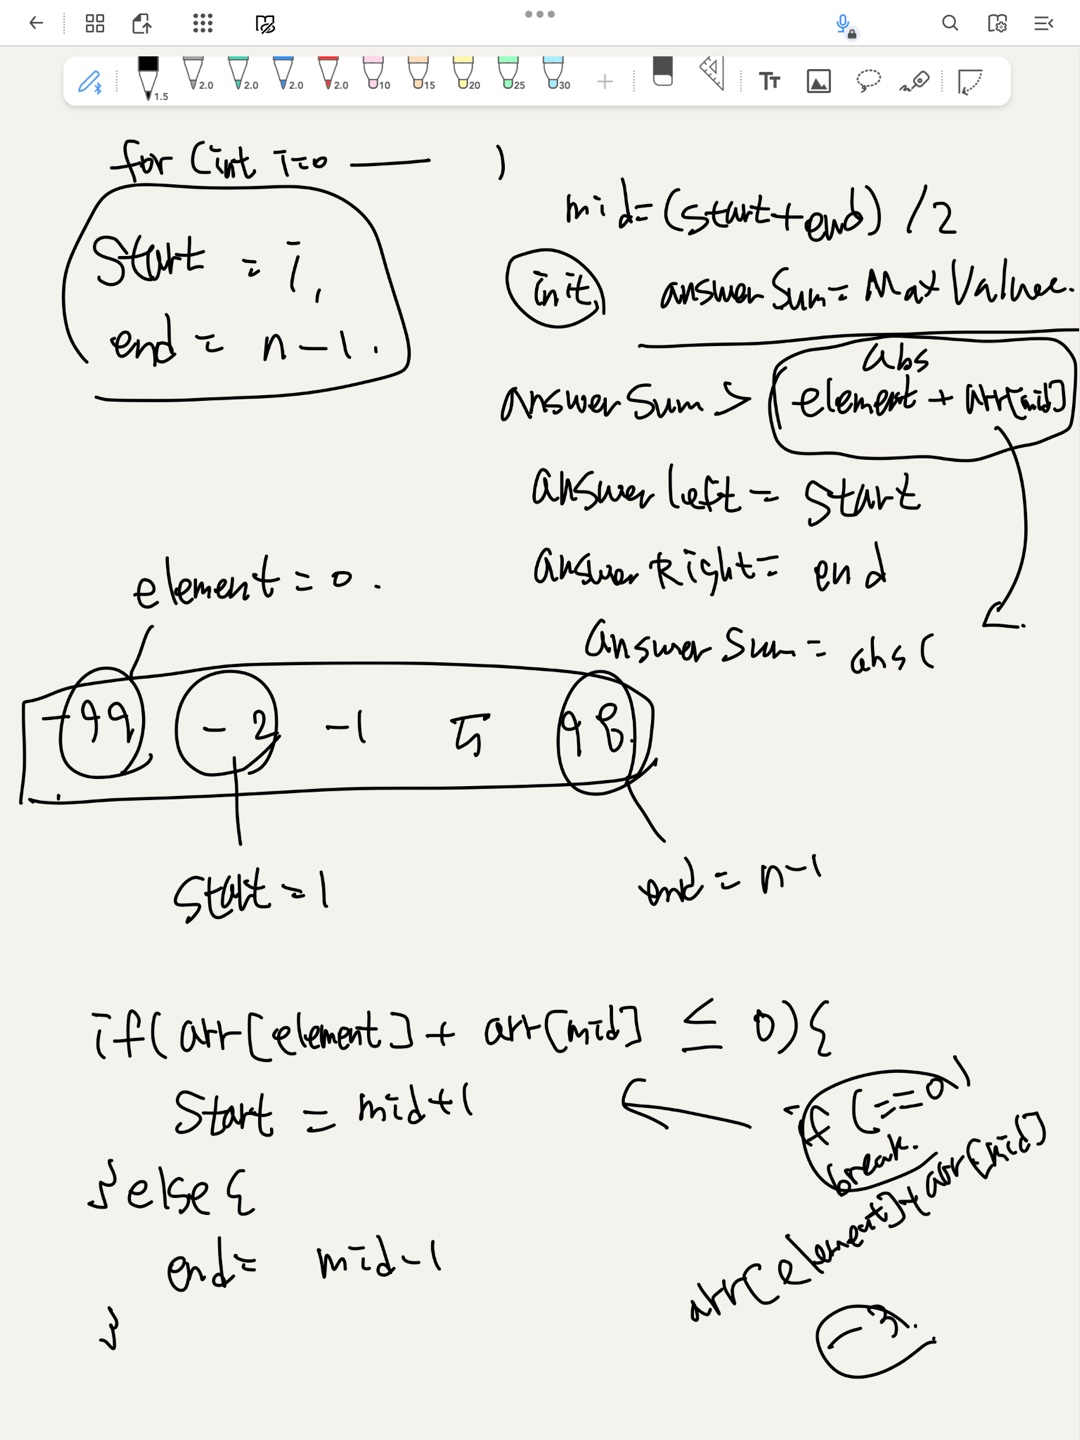 1.5 2.0 2.0 2.0 2.0 10 15 20 25 30 Tt
for (int i=0 )
Start = i,
end = n-1.
mid=(start+end) /2
init
answerSum= Max Value.
abs
answerSum > (element + arr[mid]
answer left = start
answer Right = end
answer Sum = abs (
element = 0.
-99 -2 -1 5 98
start = 1
end = n-1
if(arr[element] + arr[mid] ≤ 0){
Start = mid+1
} else {
end = mid-1
}
if (==0)
break.
arr[element]+arr[mid]
-3.